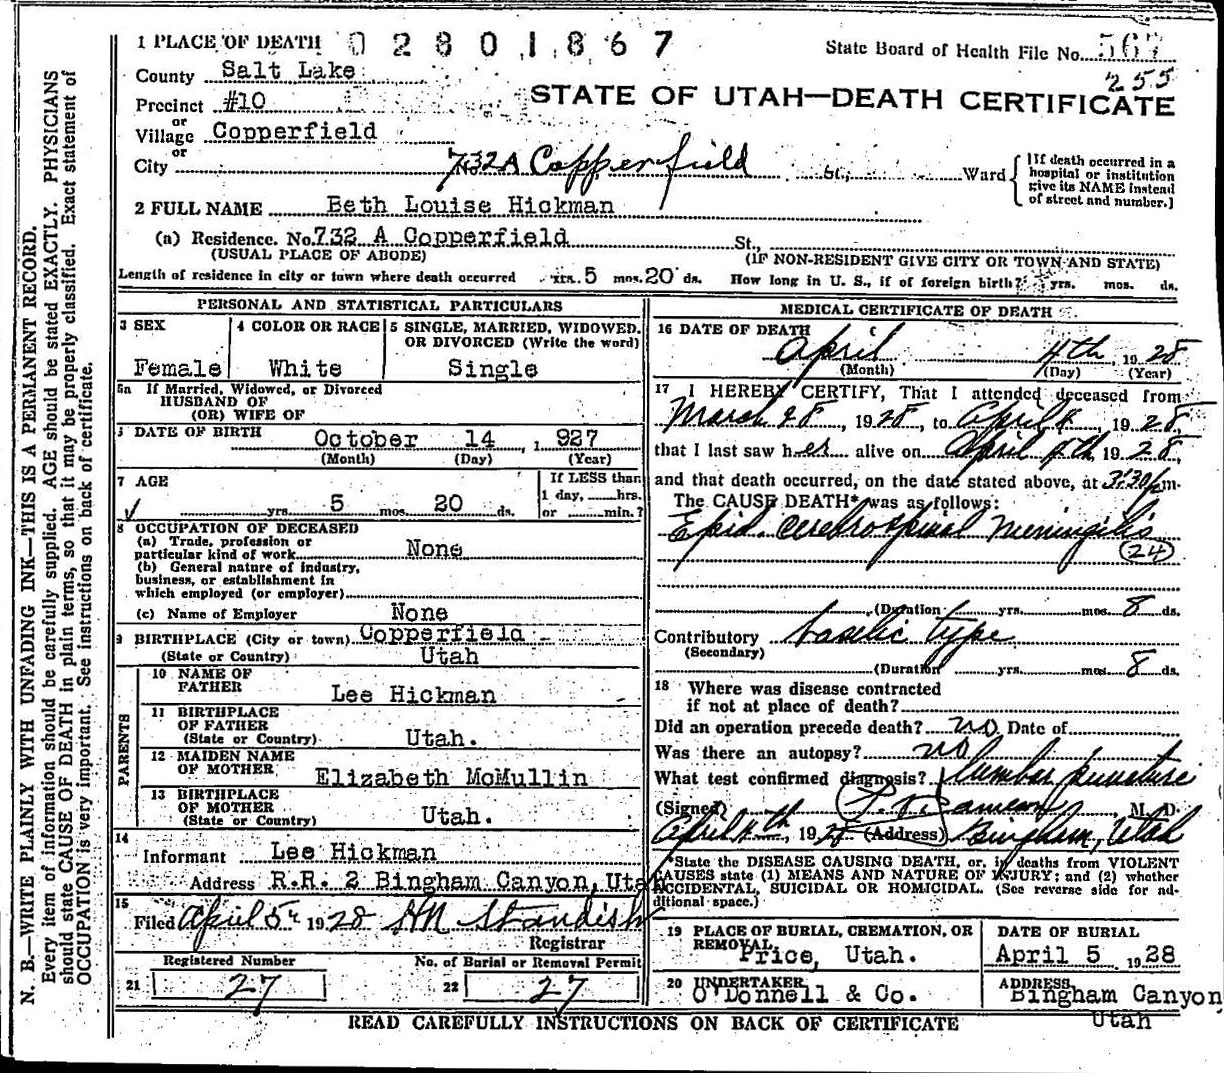 1 PLACE OF DEATH 02801867
State Board of Health File No. 567
255
County Salt Lake
Precinct #10
or
Village Copperfield
or
City
STATE OF UTAH—DEATH CERTIFICATE
732A Copperfield St., Ward
[If death occurred in a
hospital or institution
give its NAME instead
of street and number.]
2 FULL NAME Beth Louise Hickman
(a) Residence. No. 732 A Copperfield St.,
(USUAL PLACE OF ABODE) (IF NON-RESIDENT GIVE CITY OR TOWN AND STATE)
Length of residence in city or town where death occurred yrs. 5 mos. 20 ds. How long in U. S., if of foreign birth? yrs. mos. ds.
PERSONAL AND STATISTICAL PARTICULARS
3 SEX
Female
4 COLOR OR RACE
White
5 SINGLE, MARRIED, WIDOWED,
OR DIVORCED (Write the word)
Single
5a If Married, Widowed, or Divorced
HUSBAND OF
(OR) WIFE OF
DATE OF BIRTH October 14, 1927
(Month) (Day) (Year)
7 AGE
yrs. 5 mos. 20 ds.
If LESS than
1 day, hrs.
or min.?
8 OCCUPATION OF DECEASED
(a) Trade, profession or
particular kind of work None
(b) General nature of industry,
business, or establishment in
which employed (or employer)
(c) Name of Employer None
9 BIRTHPLACE (City or town) Copperfield
(State or Country) Utah
PARENTS
10 NAME OF
FATHER Lee Hickman
11 BIRTHPLACE
OF FATHER
(State or Country) Utah.
12 MAIDEN NAME
OF MOTHER Elizabeth McMullin
13 BIRTHPLACE
OF MOTHER
(State or Country) Utah.
14
Informant Lee Hickman
Address R.R. 2 Bingham Canyon, Utah
15
Filed April 5 1928 HN Standish
Registrar
Registered Number
21 27
No. of Burial or Removal Permit
22 27
MEDICAL CERTIFICATE OF DEATH
16 DATE OF DEATH
April 4th, 1928
(Month) (Day) (Year)
17 I HEREBY CERTIFY, That I attended deceased from
March 28, 1928, to April 4, 1928,
that I last saw her alive on April 4th, 1928,
and that death occurred, on the date stated above, at 3:30 p.m.
The CAUSE DEATH* was as follows:
Epid. Cerebrospinal Meningitis
(24)
(Duration yrs. mos. 8 ds.
Contributory
(Secondary)
type
(Duration yrs. mos. 8 ds.
18 Where was disease contracted
if not at place of death?
Did an operation precede death? no Date of
Was there an autopsy? no
What test confirmed diagnosis? lumbar puncture
(Signed) M. D.
April 4th, 1928 (Address) Bingham, Utah
*State the DISEASE CAUSING DEATH, or, in deaths from VIOLENT
CAUSES state (1) MEANS AND NATURE OF INJURY; and (2) whether
ACCIDENTAL, SUICIDAL OR HOMICIDAL. (See reverse side for ad-
ditional space.)
19 PLACE OF BURIAL, CREMATION, OR
REMOVAL
Price, Utah.
DATE OF BURIAL
April 5 1928
20 UNDERTAKER
O'Donnell & Co.
ADDRESS
Bingham Canyon
Utah
READ CAREFULLY INSTRUCTIONS ON BACK OF CERTIFICATE
N. B.—WRITE PLAINLY WITH UNFADING INK—THIS IS A PERMANENT RECORD.
Every item of information should be carefully supplied. AGE should be stated EXACTLY. PHYSICIANS
should state CAUSE OF DEATH in plain terms, so that it may be properly classified. Exact statement of
OCCUPATION is very important. See instructions on back of certificate.